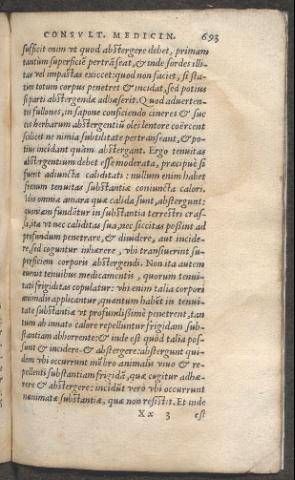 CONSVLT. MEDICIN. 693
sufficit enim vt quod abstergere debet, primam
tantùm superficiẽ pertrãseat, & inde sordes illi-
tas vel impactas exiccet: quod non faciet, si sta-
tim totum corpus penetret & incidat, sed potius
si parti abstergendæ adhæserit. Quod aduerten-
tes fullones, in sapone conficiendo cineres & suc
cos herbarum abstergentiũ oleo lentore coërcent
scilicet ne nimia subtilitate pertranseant, & po-
tius incidant quàm abstergant. Ergo tenuitas
abstergentium debet esse moderata, præcipuè si
fuerit adiuncta caliditati: nullum enim habet
tenuitas substantiæ coniuncta calori.
omnia amara quæ calida sunt, abstergunt:
quoniam fundãtur in substantia terrestri cras-
sa, ita vt nec caliditas sua, nec siccitas possint ad
profundum penetrare, & diuidere, aut incide-
re, sed coguntur inhærere, vbi transiuerint su-
perficiem corporis abstergendi. Non ita autem
tenuibus medicamentis, quorum tenui-
tati frigiditas copulatur: vbi enim talia corpori
animalis applicantur, quantum habẽt in tenui-
tate substantiæ vt profundissimè penetrent, tan
tum ab innato calore repelluntur frigidam sub-
stantiam abhorrente: & inde est quòd talia pos-
sunt & incidere. & abstergere: abstergunt qui-
dem vbi occurrunt mẽbro animalis viuo & re-
pellenti substantiam frigidã, quæ cogitur adhæ-
rere & abstergere: incidũt verò vbi occurrunt
inanimatæ substantiæ, quæ non resistit. Et inde
Xx 3 est